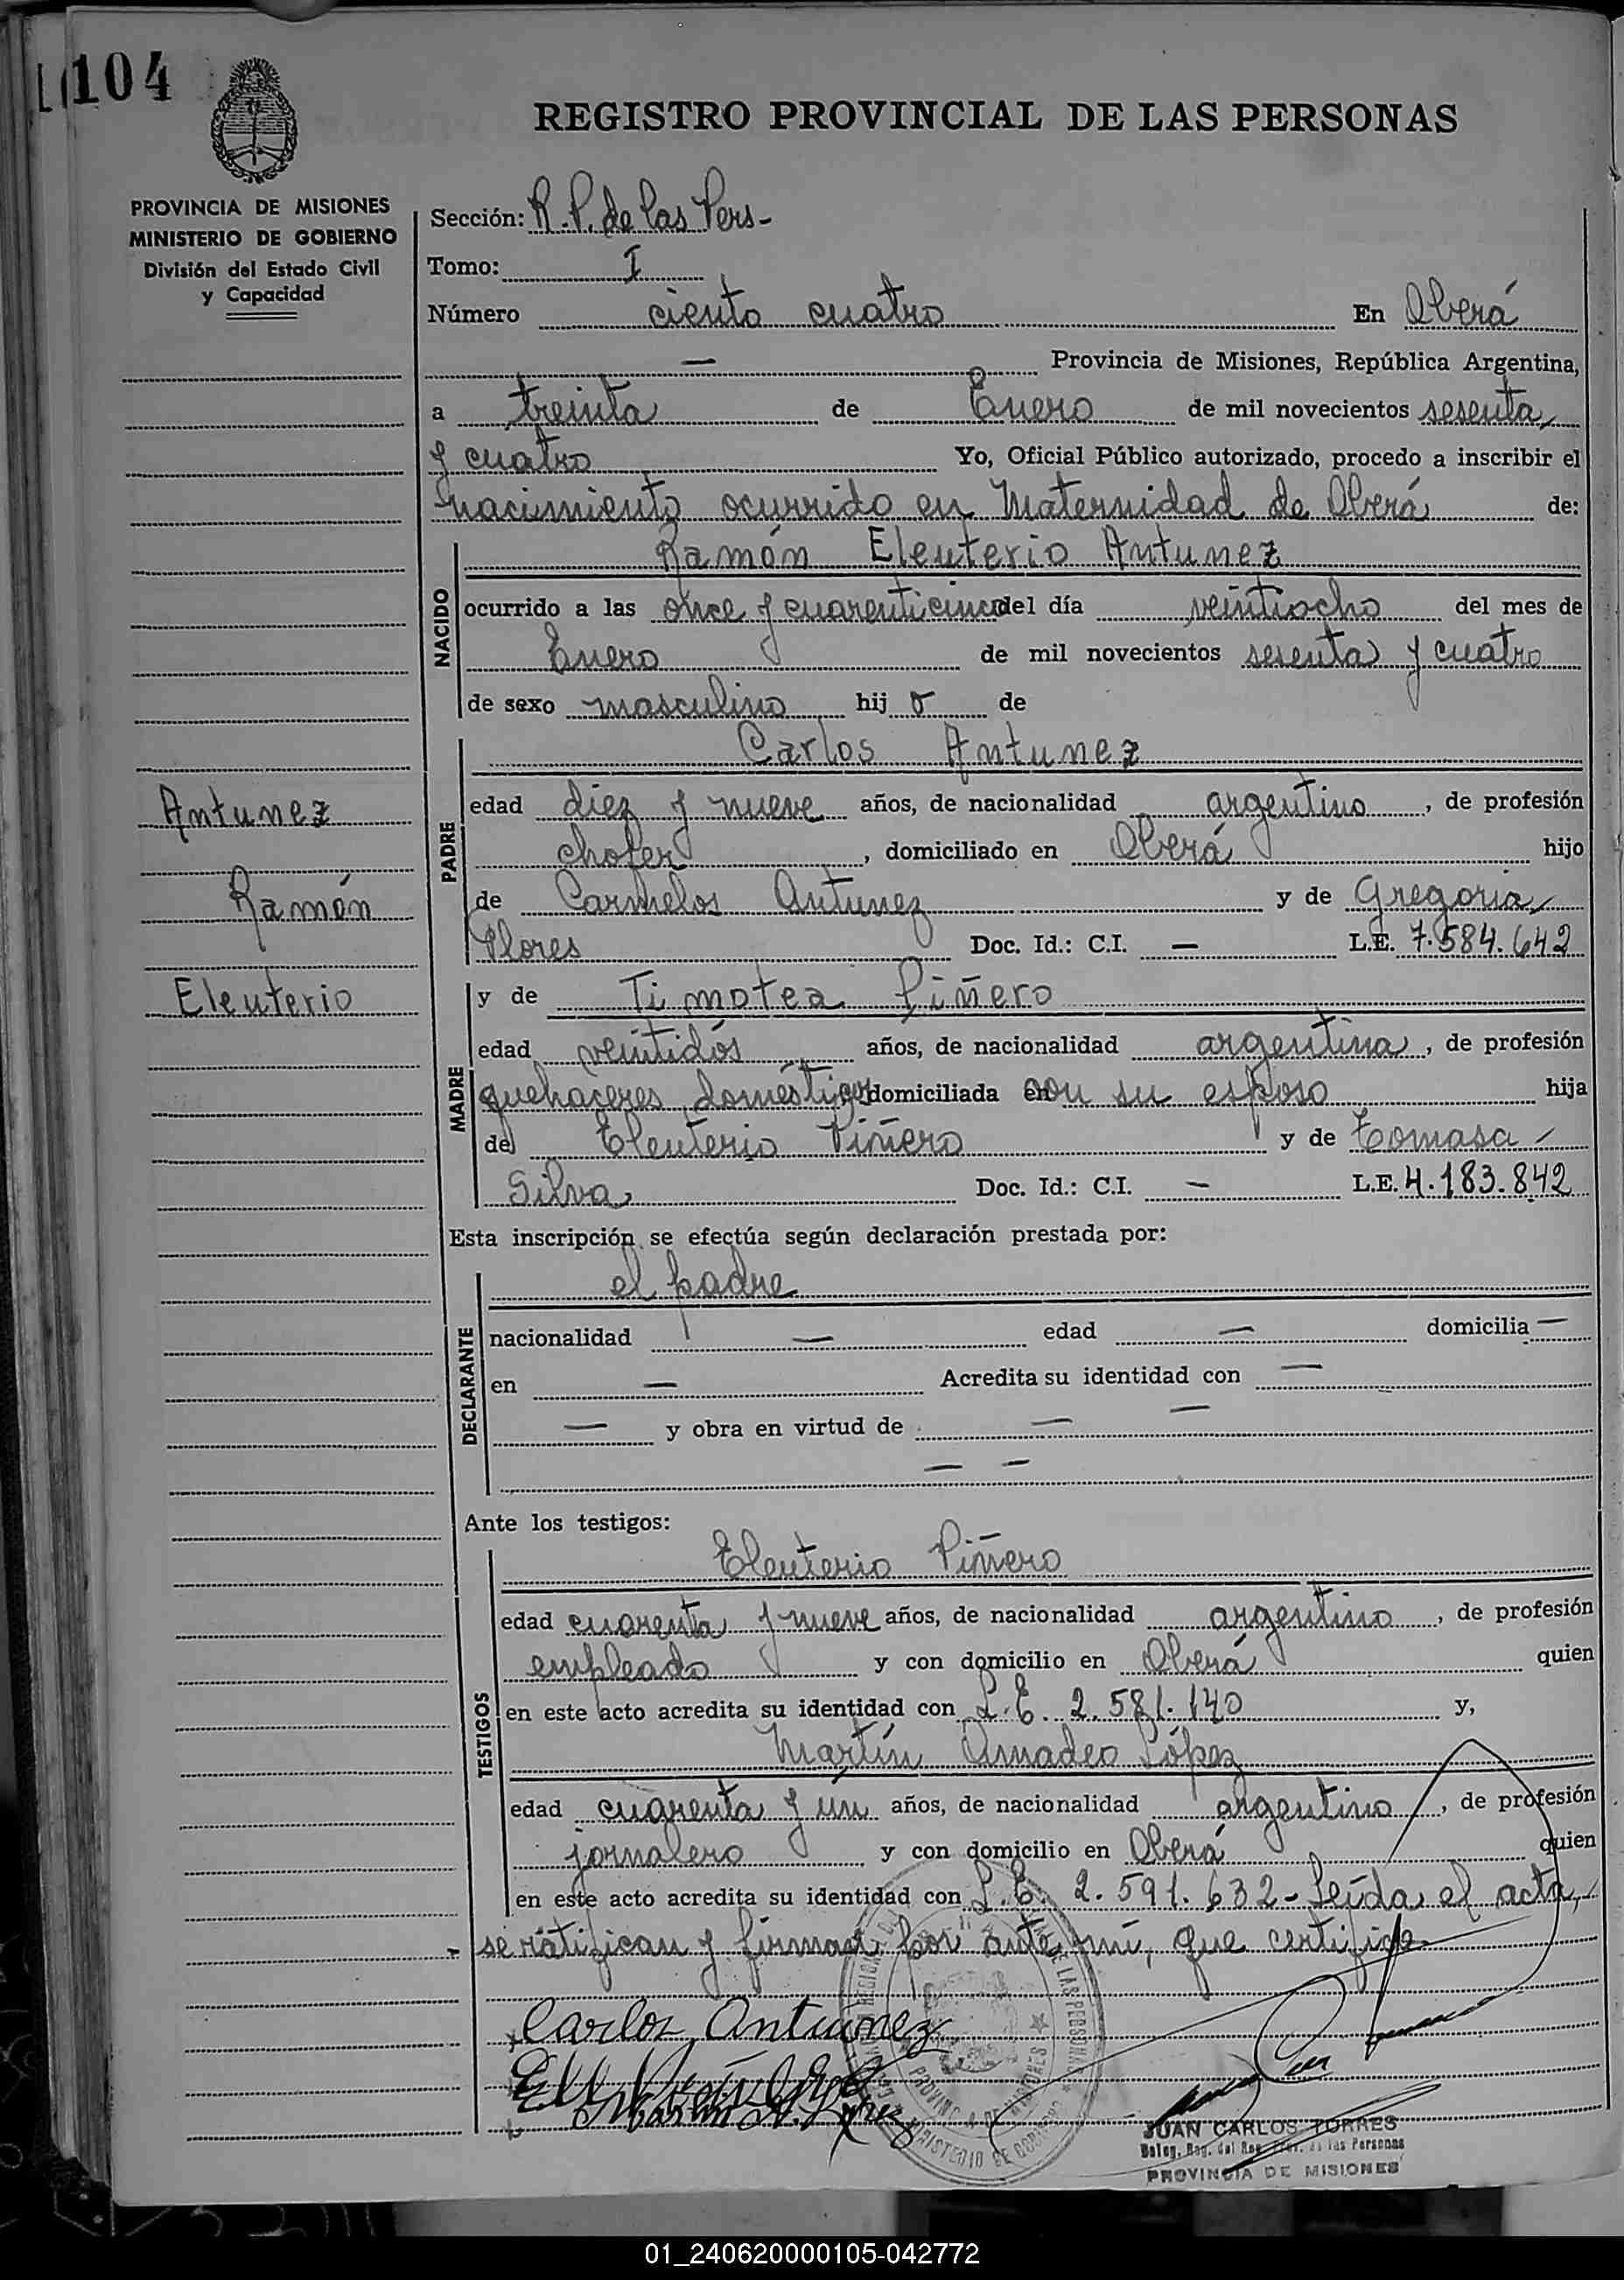 104
REGISTRO PROVINCIAL DE LAS PERSONAS
PROVINCIA DE MISIONES
MINISTERIO DE GOBIERNO
División del Estado Civil
y Capacidad
Sección: R.P. de las Pers-
Tomo: I
Número ciento cuatro En Oberá
— Provincia de Misiones, República Argentina,
a treinta de Enero de mil novecientos sesenta
y cuatro Yo, Oficial Público autorizado, procedo a inscribir el
nacimiento ocurrido en Maternidad de Oberá de:
NACIDO
Ramón Eleuterio Antunez
ocurrido a las once y cuarenticinco del día veintiocho del mes de
Enero de mil novecientos sesenta y cuatro
de sexo masculino hij o de
PADRE
Carlos Antunez
edad diez y nueve años, de nacionalidad argentino, de profesión
chofer, domiciliado en Oberá hijo
de Carmelos Antunez y de Gregoria
Flores Doc. Id.: C.I. — L.E. 7.584.642
Antunez
Ramón
Eleuterio
MADRE
y de Timotea Piñero
edad veintidós años, de nacionalidad argentina, de profesión
quehaceres domésticos domiciliada en con su esposo hija
de Eleuterio Piñero y de Tomasa
Silva Doc. Id.: C.I. — L.E. 4.183.842
Esta inscripción se efectúa según declaración prestada por:
DECLARANTE
el padre
nacionalidad — edad — domicilia —
en — Acredita su identidad con —
— y obra en virtud de — —
— —
Ante los testigos:
TESTIGOS
Eleuterio Piñero
edad cuarenta y nueve años, de nacionalidad argentino, de profesión
empleado y con domicilio en Oberá quien
en este acto acredita su identidad con L.E. 2.581.140 y,
Martín Amadeo López
edad cuarenta y un años, de nacionalidad argentino, de profesión
jornalero y con domicilio en Oberá quien
en este acto acredita su identidad con L.E. 2.591.632- Leída el acta,
se ratifican y firman por ante mí, que certifico
Carlos Antunez
Martin A. López
PROVINCIA DE MISIONES
MINISTERIO DE GOBIERNO
DE LAS PERSONAS
JUAN CARLOS TORRES
Deleg. Reg. del Reg. Prov. de las Personas
PROVINCIA DE MISIONES
01_240620000105-042772